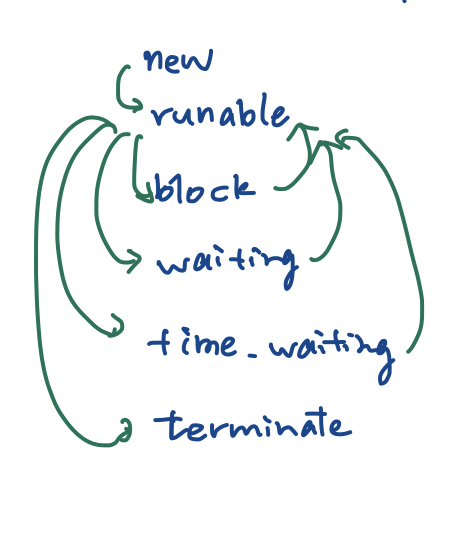 new
runable
block
waiting
time_waiting
terminate